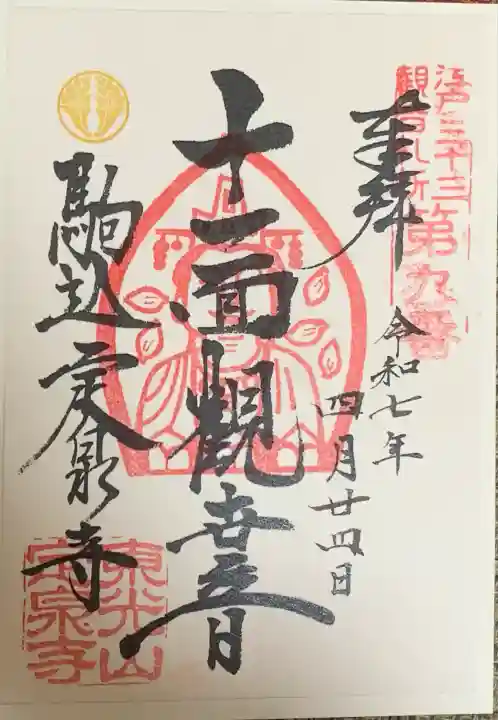 江戸三十三
観音札所第九番
奉拝
令和七年
四月廿四日
十一面観世音
駒込定泉寺
東光山
定泉寺